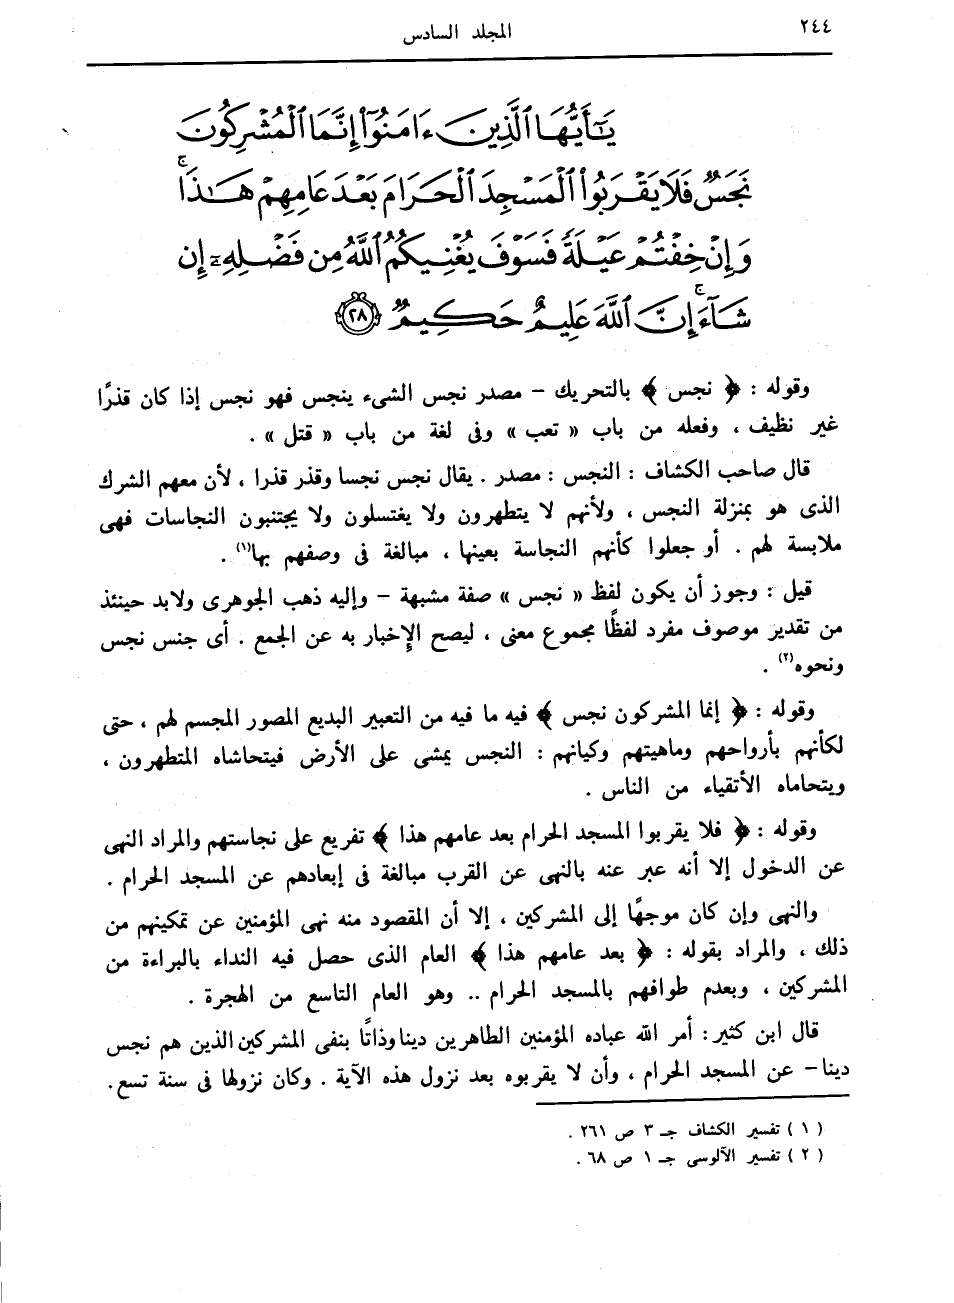 ٢٤٤
المجلد السادس
يَٰٓأَيُّهَا ٱلَّذِينَ ءَامَنُوٓا۟ إِنَّمَا ٱلْمُشْرِكُونَ
نَجَسٌ فَلَا يَقْرَبُوا۟ ٱلْمَسْجِدَ ٱلْحَرَامَ بَعْدَ عَامِهِمْ هَٰذَا ۚ
وَإِنْ خِفْتُمْ عَيْلَةً فَسَوْفَ يُغْنِيكُمُ ٱللَّهُ مِن فَضْلِهِۦٓ إِن
شَآءَ ۚ إِنَّ ٱللَّهَ عَلِيمٌ حَكِيمٌ ٢٨
وقوله : ﴿ نجس ﴾ بالتحريك – مصدر نجس الشىء ينجس فهو نجس إذا كان قذرًا
غير نظيف ، وفعله من باب « تعب » وفى لغة من باب « قتل » .
قال صاحب الكشاف : النجس : مصدر . يقال نجس نجسا وقذر قذرا ، لأن معهم الشرك
الذى هو بمنزلة النجس ، ولأنهم لا يتطهرون ولا يغتسلون ولا يجتنبون النجاسات فهى
ملابسة لهم . أو جعلوا كأنهم النجاسة بعينها ، مبالغة فى وصفهم بها(١) .
قيل : وجوز أن يكون لفظ « نجس » صفة مشبهة – وإليه ذهب الجوهرى ولابد حينئذ
من تقدير موصوف مفرد لفظًا مجموع معنى ، ليصح الإخبار به عن الجمع . أى جنس نجس
ونحوه(٢) .
وقوله : ﴿ إنما المشركون نجس ﴾ فيه ما فيه من التعبير البديع المصور المجسم لهم ، حتى
لكأنهم بأرواحهم وماهيتهم وكيانهم : النجس يمشى على الأرض فيتحاشاه المتطهرون ،
ويتحاماه الأتقياء من الناس .
وقوله : ﴿ فلا يقربوا المسجد الحرام بعد عامهم هذا ﴾ تفريع على نجاستهم والمراد النهى
عن الدخول إلا أنه عبر عنه بالنهى عن القرب مبالغة فى إبعادهم عن المسجد الحرام .
والنهى وإن كان موجهًا إلى المشركين ، إلا أن المقصود منه نهى المؤمنين عن تمكينهم من
ذلك ، والمراد بقوله : ﴿ بعد عامهم هذا ﴾ العام الذى حصل فيه النداء بالبراءة من
المشركين ، وبعدم طوافهم بالمسجد الحرام .. وهو العام التاسع من الهجرة .
قال ابن كثير : أمر الله عباده المؤمنين الطاهرين دينا وذاتًا بنفى المشركين الذين هم نجس
دينا – عن المسجد الحرام ، وأن لا يقربوه بعد نزول هذه الآية . وكان نزولها فى سنة تسع .
( ١ ) تفسير الكشاف جـ ٣ ص ٢٦١ .
( ٢ ) تفسير الآلوسى جـ ١ ص ٦٨ .